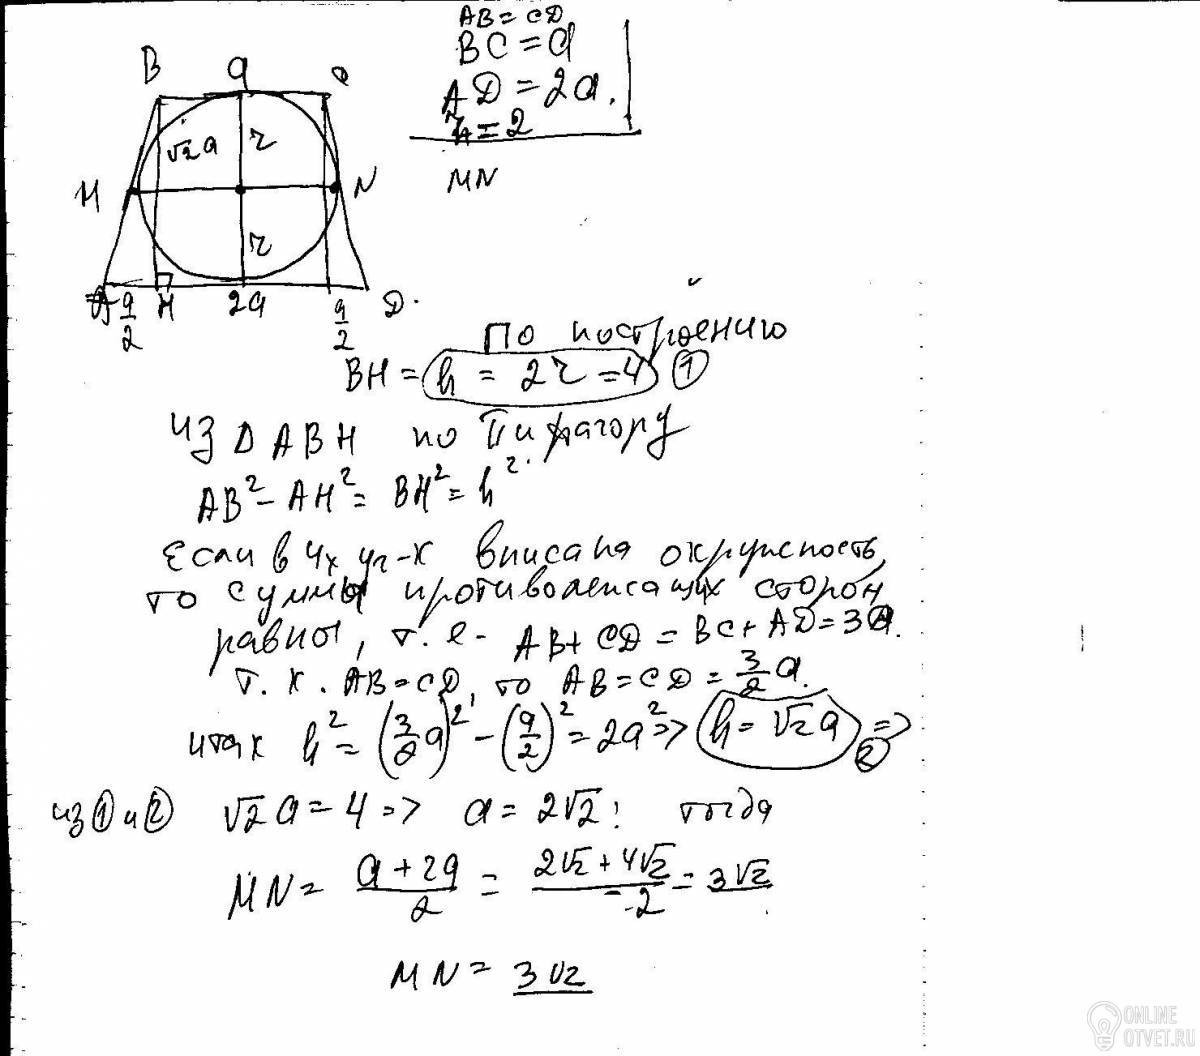 AB = CD
BC = a
AD = 2a.
r = 2
MN
B a
√2 a r
M N
r
A a/2 H 2a a/2 D.
По построению
BH = h = 2r = 4 ①
из Δ ABH по Пифагору
AB² - AH² = BH² = h².
Если в 4х уг-к вписана окружность,
то суммы противолежащих сторон
равны, т. е- AB + CD = BC + AD = 3a.
т. к. AB = CD, то AB = CD = 3/2 a.
итак h² = (3/2 a)² - (a/2)² = 2a² => h = √2 a => ②
из ① и ② √2 a = 4 => a = 2√2! тогда
MN = a + 2a / 2 = 2√2 + 4√2 / 2 = 3√2
MN = 3√2
ONLINE
OTVET.RU